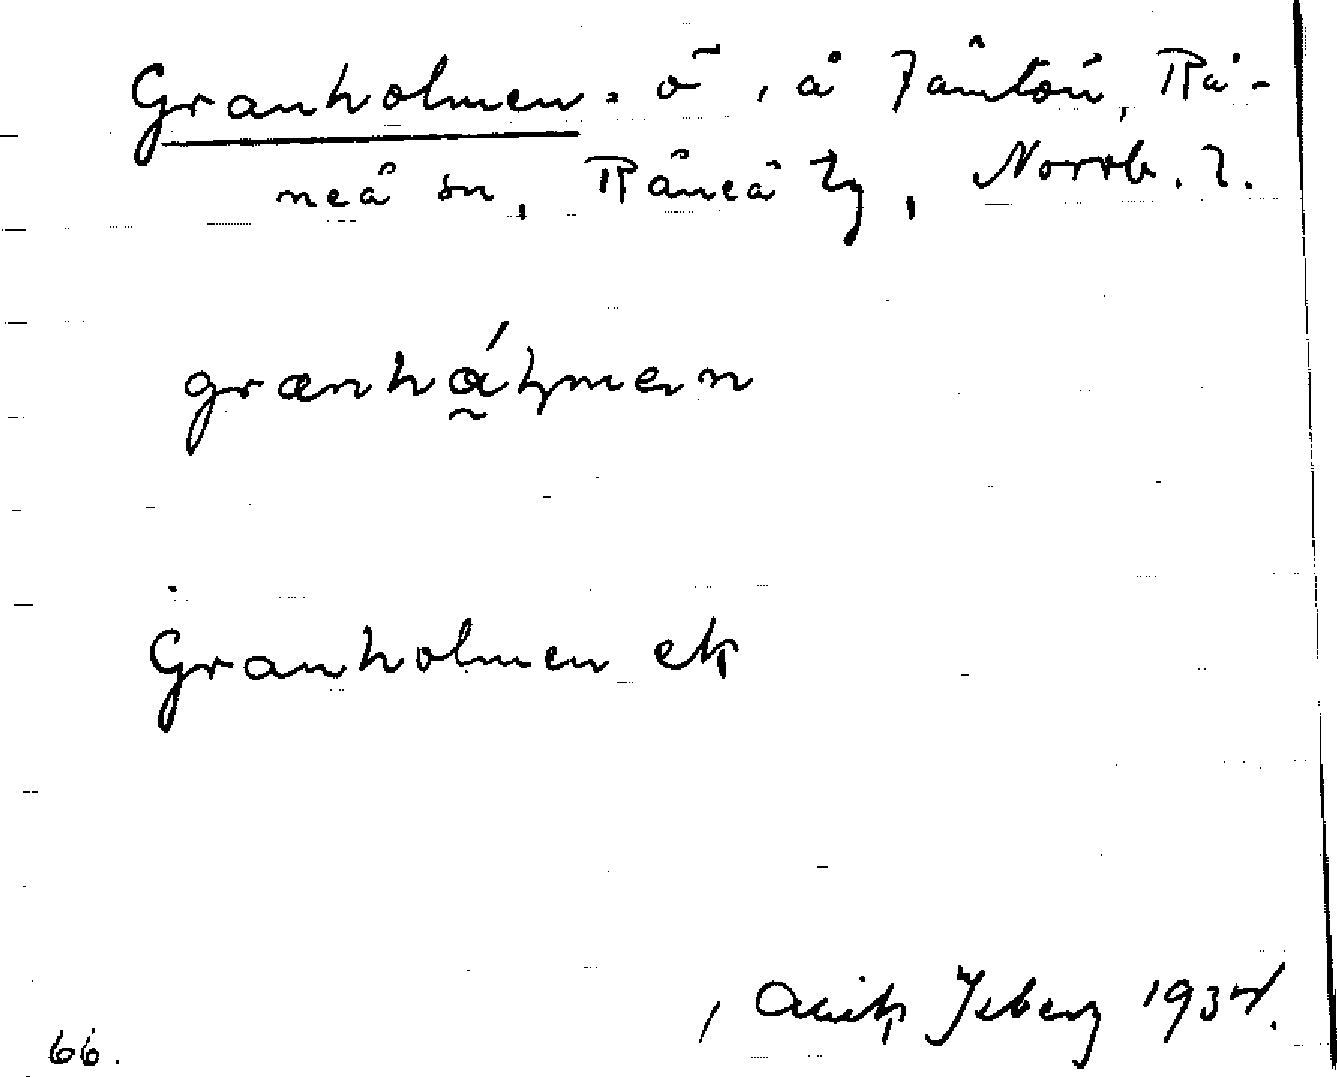 Granholmen. ö, å Jämtön, Rå-
neå sn, Råneå tg, Norrb. l.
granhålmen
Granholmen ek
66.
1934.